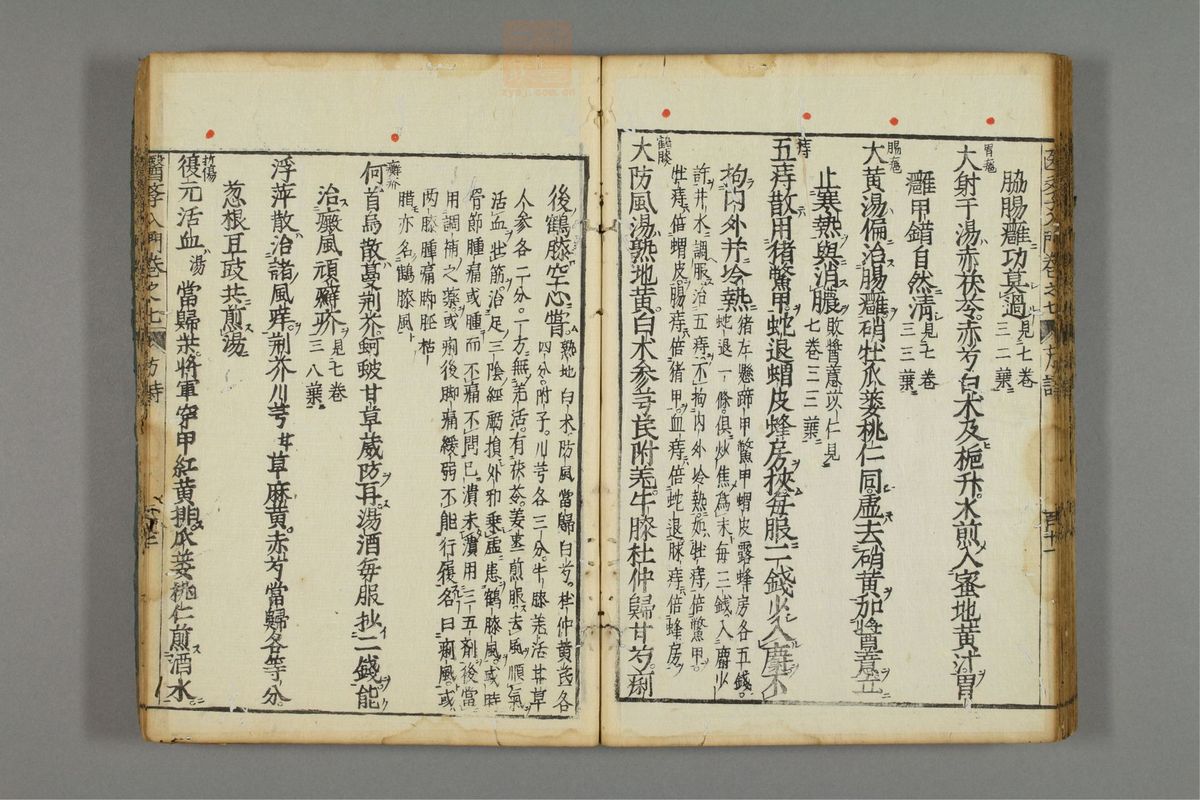 醫學入門卷之七 方詩
脇腸癰功莫過 見七卷三二葉
胃癰
大射干湯赤茯苓赤芍白朮及梔升水煎入蜜地黃汁胃
癰甲錯自然清 見七卷三三葉
腸癰
大黃湯偏治腸癰硝牡瓜蔞桃仁同虛去硝黃加醬薏苡
止寒熱與消膿 敗醬薏苡仁見七卷三三葉
痔
五痔散用猪鱉甲蛇退蝟皮蜂房挾每服二錢少入麝不
拘內外并冷熱 猪左懸蹄甲鱉甲蝟皮露蜂房各五錢
蛇退一條俱炒焦為末每三錢入麝少
許井水調服治五痔不拘內外冷熱如牡痔倍鱉甲
牡痔倍蝟皮腸痔倍猪甲血痔倍蛇退脉痔倍蜂房
鶴膝
大防風湯熟地黃白朮參芎芪附羌牛膝杜仲歸甘芍痢
後鶴膝空心嘗 熟地白朮防風當歸白芍杜仲黃芪各
四分附子川芎各三分牛膝羌活甘草
人參各二分一方無羌活有茯苓姜棗煎服去風順氣
活血壯筋治足三陰經虧損外邪乘虛患鶴膝風或時
骨節腫痛或腫而不痛不問已潰未潰用三五劑後當
用調補之藥或痢後脚痛緩弱不能行履名曰痢風或
兩膝腫痛脚脛枯
腊亦名鶴膝風
癬疥
何首烏散蔓荊芥蚵蚾甘草葳防耳湯酒每服抄二錢能
治癜風頑癬疥 見七卷三八葉
浮萍散治諸風痒荊芥川芎甘草麻黃赤芍當歸各等分
葱根豆豉共煎湯
折傷
復元活血湯當歸柴將軍穿甲紅黃排瓜蔞桃仁煎酒水
醫學入門卷之七 方詩